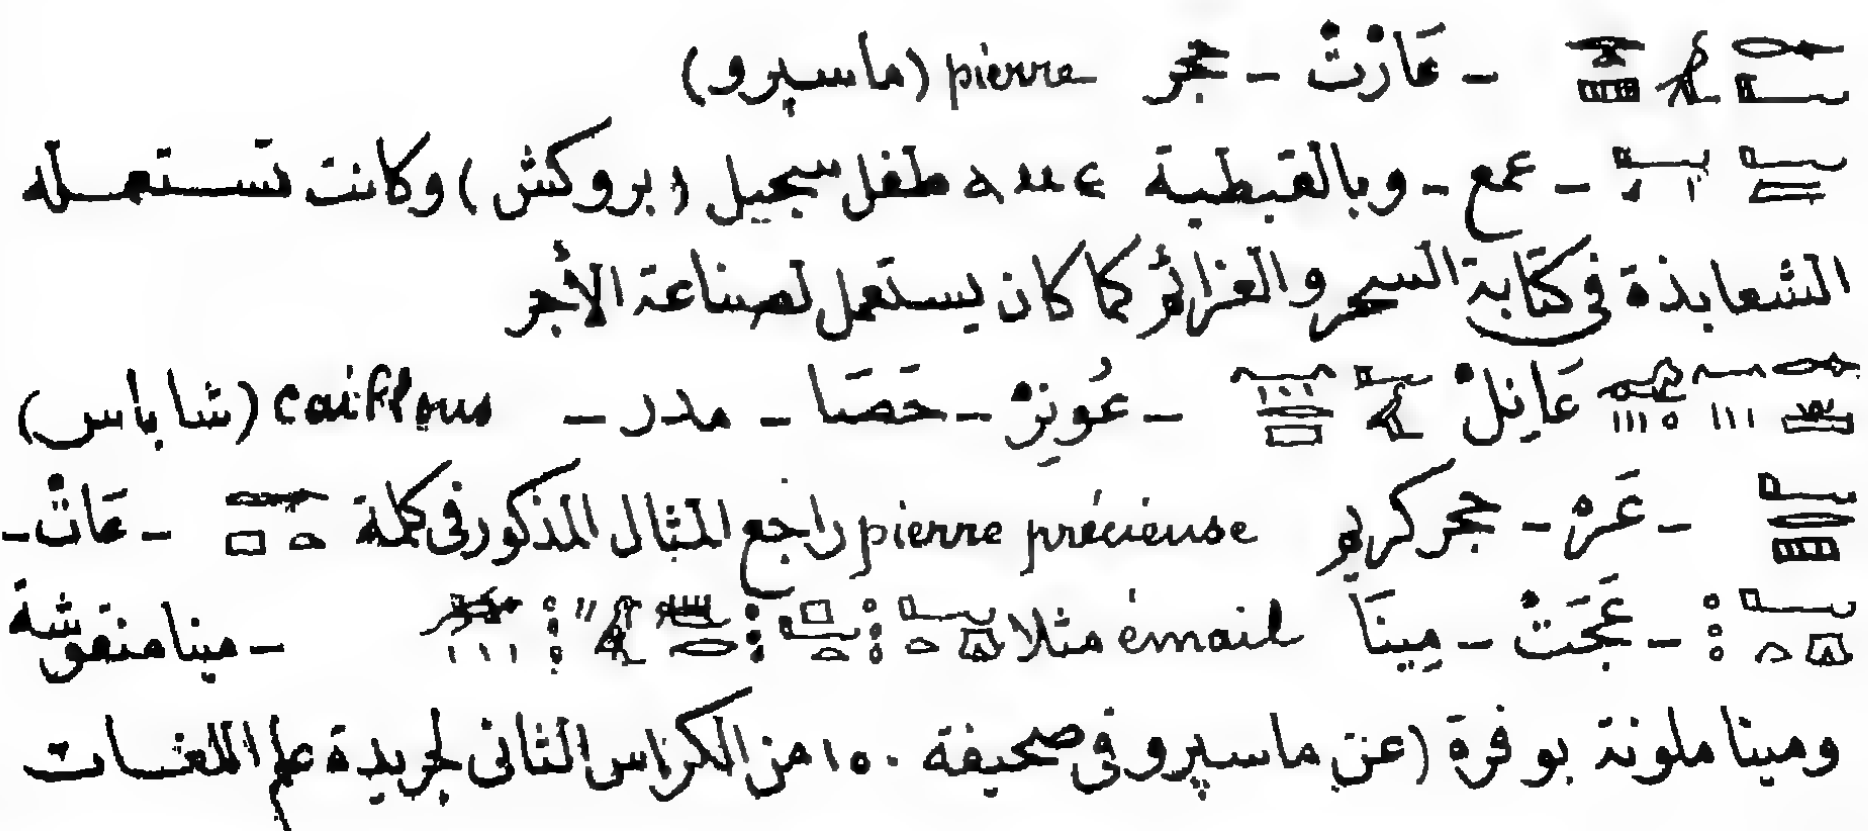 - عَازْتْ - حجر pierre (ماسپرو)
- عمع - وبالقبطية ⲁⲙⲉ طفل سجيل (بروكش) وكانت تستعمله
الشعابذة فى كتابة السحر والعزائر كما كان يستعمل لصناعة الأجر
عَانِلْ - عُونِرْ - حَصَا - مدر - caillous (شاباس)
- عَرْ - حجر كريم pierre précieuse راجع المثال المذكور فى كلة - عَاتْ -
- عَجَتْ - مِينَا émail مثلا - مينا منقوشة
ومينا ملونة بوفرة (عن ماسپرو فى صحيفة ١٥٠ من الكراس الثانى لجريدة علم اللغات